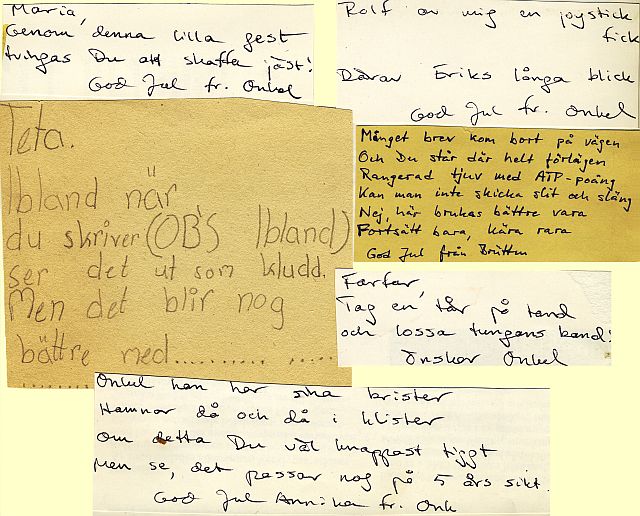 Maria,
Genom denna lilla gest
tvingas Du att skaffa jäst!
God Jul fr. Onkel
Rolf av mig en joystick
fick
Därav Eriks långa blick
God Jul fr. Onkel
Teta.
Ibland när
du skriver (OBS Ibland)
ser det ut som kludd.
Men det blir nog
bättre med...............
Månget brev kom bort på vägen
Och Du står där helt förlägen
Rangerad tjuv med ATP-poäng
Kan man inte skicka slit och släng
Nej, här brukas bättre vara
Fortsätt bara, kära rara
God Jul från Britten
Farfar,
Tag en tår på tand
och lossa tungans band!
önskar Onkel
Onkel han har sina brister
Hamnar då och då i klister
Om detta Du väl knappast tiggt
Men se, det passar nog på 5 års sikt.
God Jul Annika fr. Onk